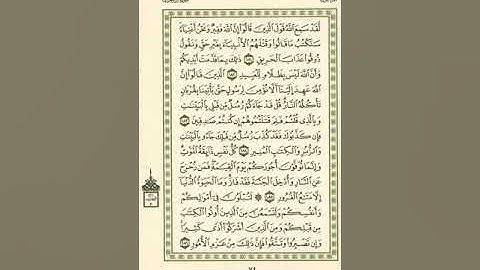 لَّقَدْ سَمِعَ ٱللَّهُ قَوْلَ ٱلَّذِينَ قَالُوٓا۟ إِنَّ ٱللَّهَ فَقِيرٌ وَنَحْنُ أَغْنِيَآءُ
سَنَكْتُبُ مَا قَالُوا۟ وَقَتْلَهُمُ ٱلْأَنۢبِيَآءَ بِغَيْرِ حَقٍّ وَنَقُولُ
ذُوقُوا۟ عَذَابَ ٱلْحَرِيقِ ١٨١ ذَٰلِكَ بِمَا قَدَّمَتْ أَيْدِيكُمْ
وَأَنَّ ٱللَّهَ لَيْسَ بِظَلَّامٍ لِّلْعَبِيدِ ١٨٢ ٱلَّذِينَ قَالُوٓا۟ إِنَّ
ٱللَّهَ عَهِدَ إِلَيْنَآ أَلَّا نُؤْمِنَ لِرَسُولٍ حَتَّىٰ يَأْتِيَنَا بِقُرْبَانٍ
تَأْكُلُهُ ٱلنَّارُ قُلْ قَدْ جَآءَكُمْ رُسُلٌ مِّن قَبْلِى بِٱلْبَيِّنَٰتِ
وَبِٱلَّذِى قُلْتُمْ فَلِمَ قَتَلْتُمُوهُمْ إِن كُنتُمْ صَٰدِقِينَ ١٨٣
فَإِن كَذَّبُوكَ فَقَدْ كُذِّبَ رُسُلٌ مِّن قَبْلِكَ جَآءُو بِٱلْبَيِّنَٰتِ
وَٱلزُّبُرِ وَٱلْكِتَٰبِ ٱلْمُنِيرِ ١٨٤ كُلُّ نَفْسٍ ذَآئِقَةُ ٱلْمَوْتِ
وَإِنَّمَا تُوَفَّوْنَ أُجُورَكُمْ يَوْمَ ٱلْقِيَٰمَةِ فَمَن زُحْزِحَ
عَنِ ٱلنَّارِ وَأُدْخِلَ ٱلْجَنَّةَ فَقَدْ فَازَ وَمَا ٱلْحَيَوٰةُ ٱلدُّنْيَآ
إِلَّا مَتَٰعُ ٱلْغُرُورِ ١٨٥ ۞ لَتُبْلَوُنَّ فِىٓ أَمْوَٰلِكُمْ
وَأَنفُسِكُمْ وَلَتَسْمَعُنَّ مِنَ ٱلَّذِينَ أُوتُوا۟ ٱلْكِتَٰبَ
مِن قَبْلِكُمْ وَمِنَ ٱلَّذِينَ أَشْرَكُوٓا۟ أَذًى كَثِيرًا
وَإِن تَصْبِرُوا۟ وَتَتَّقُوا۟ فَإِنَّ ذَٰلِكَ مِنْ عَزْمِ ٱلْأُمُورِ ١٨٦